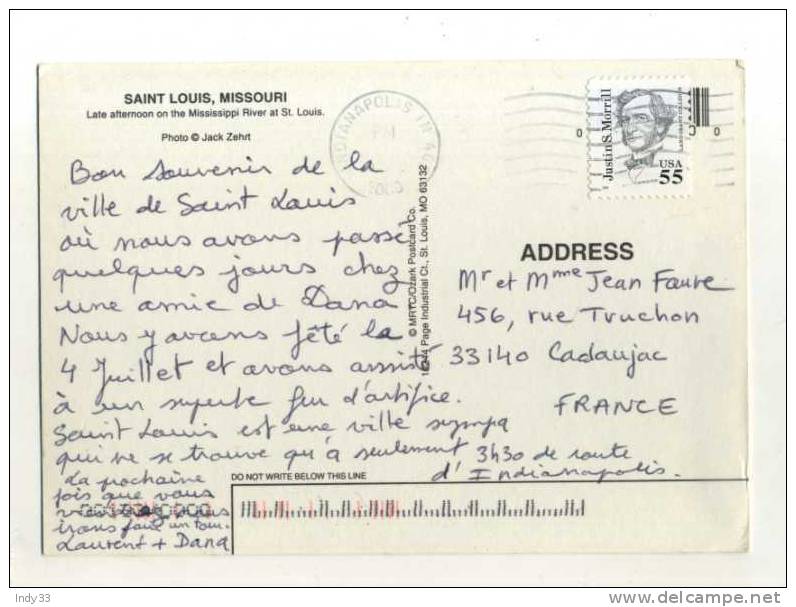 SAINT LOUIS, MISSOURI
Late afternoon on the Mississippi River at St. Louis.
Photo © Jack Zehrt
Bon souvenir de la
ville de Saint Louis
où nous avons passé
quelques jours chez
une amie de Dana
Nous y avons fêté le
4 Juillet et avons assisté
à un superbe feu d'artifice.
Saint Louis est une ville sympa
qui ne se trouve qu'à seulement 3h30 de route
d'Indianapolis.
La prochaine
fois que vous
viendrez nous
irons faire un tour.
Laurent + Dana
© MRTC/Ozark Postcard Co.
Page Industrial Ct., St. Louis, MO 63132
INDIANAPOLIS IN
PM
Justin S. Morrill
USA
55
ADDRESS
Mr et Mme Jean Faure
456, rue Truchon
33140 Cadaujac
FRANCE
DO NOT WRITE BELOW THIS LINE
Indy33
delcampe.net